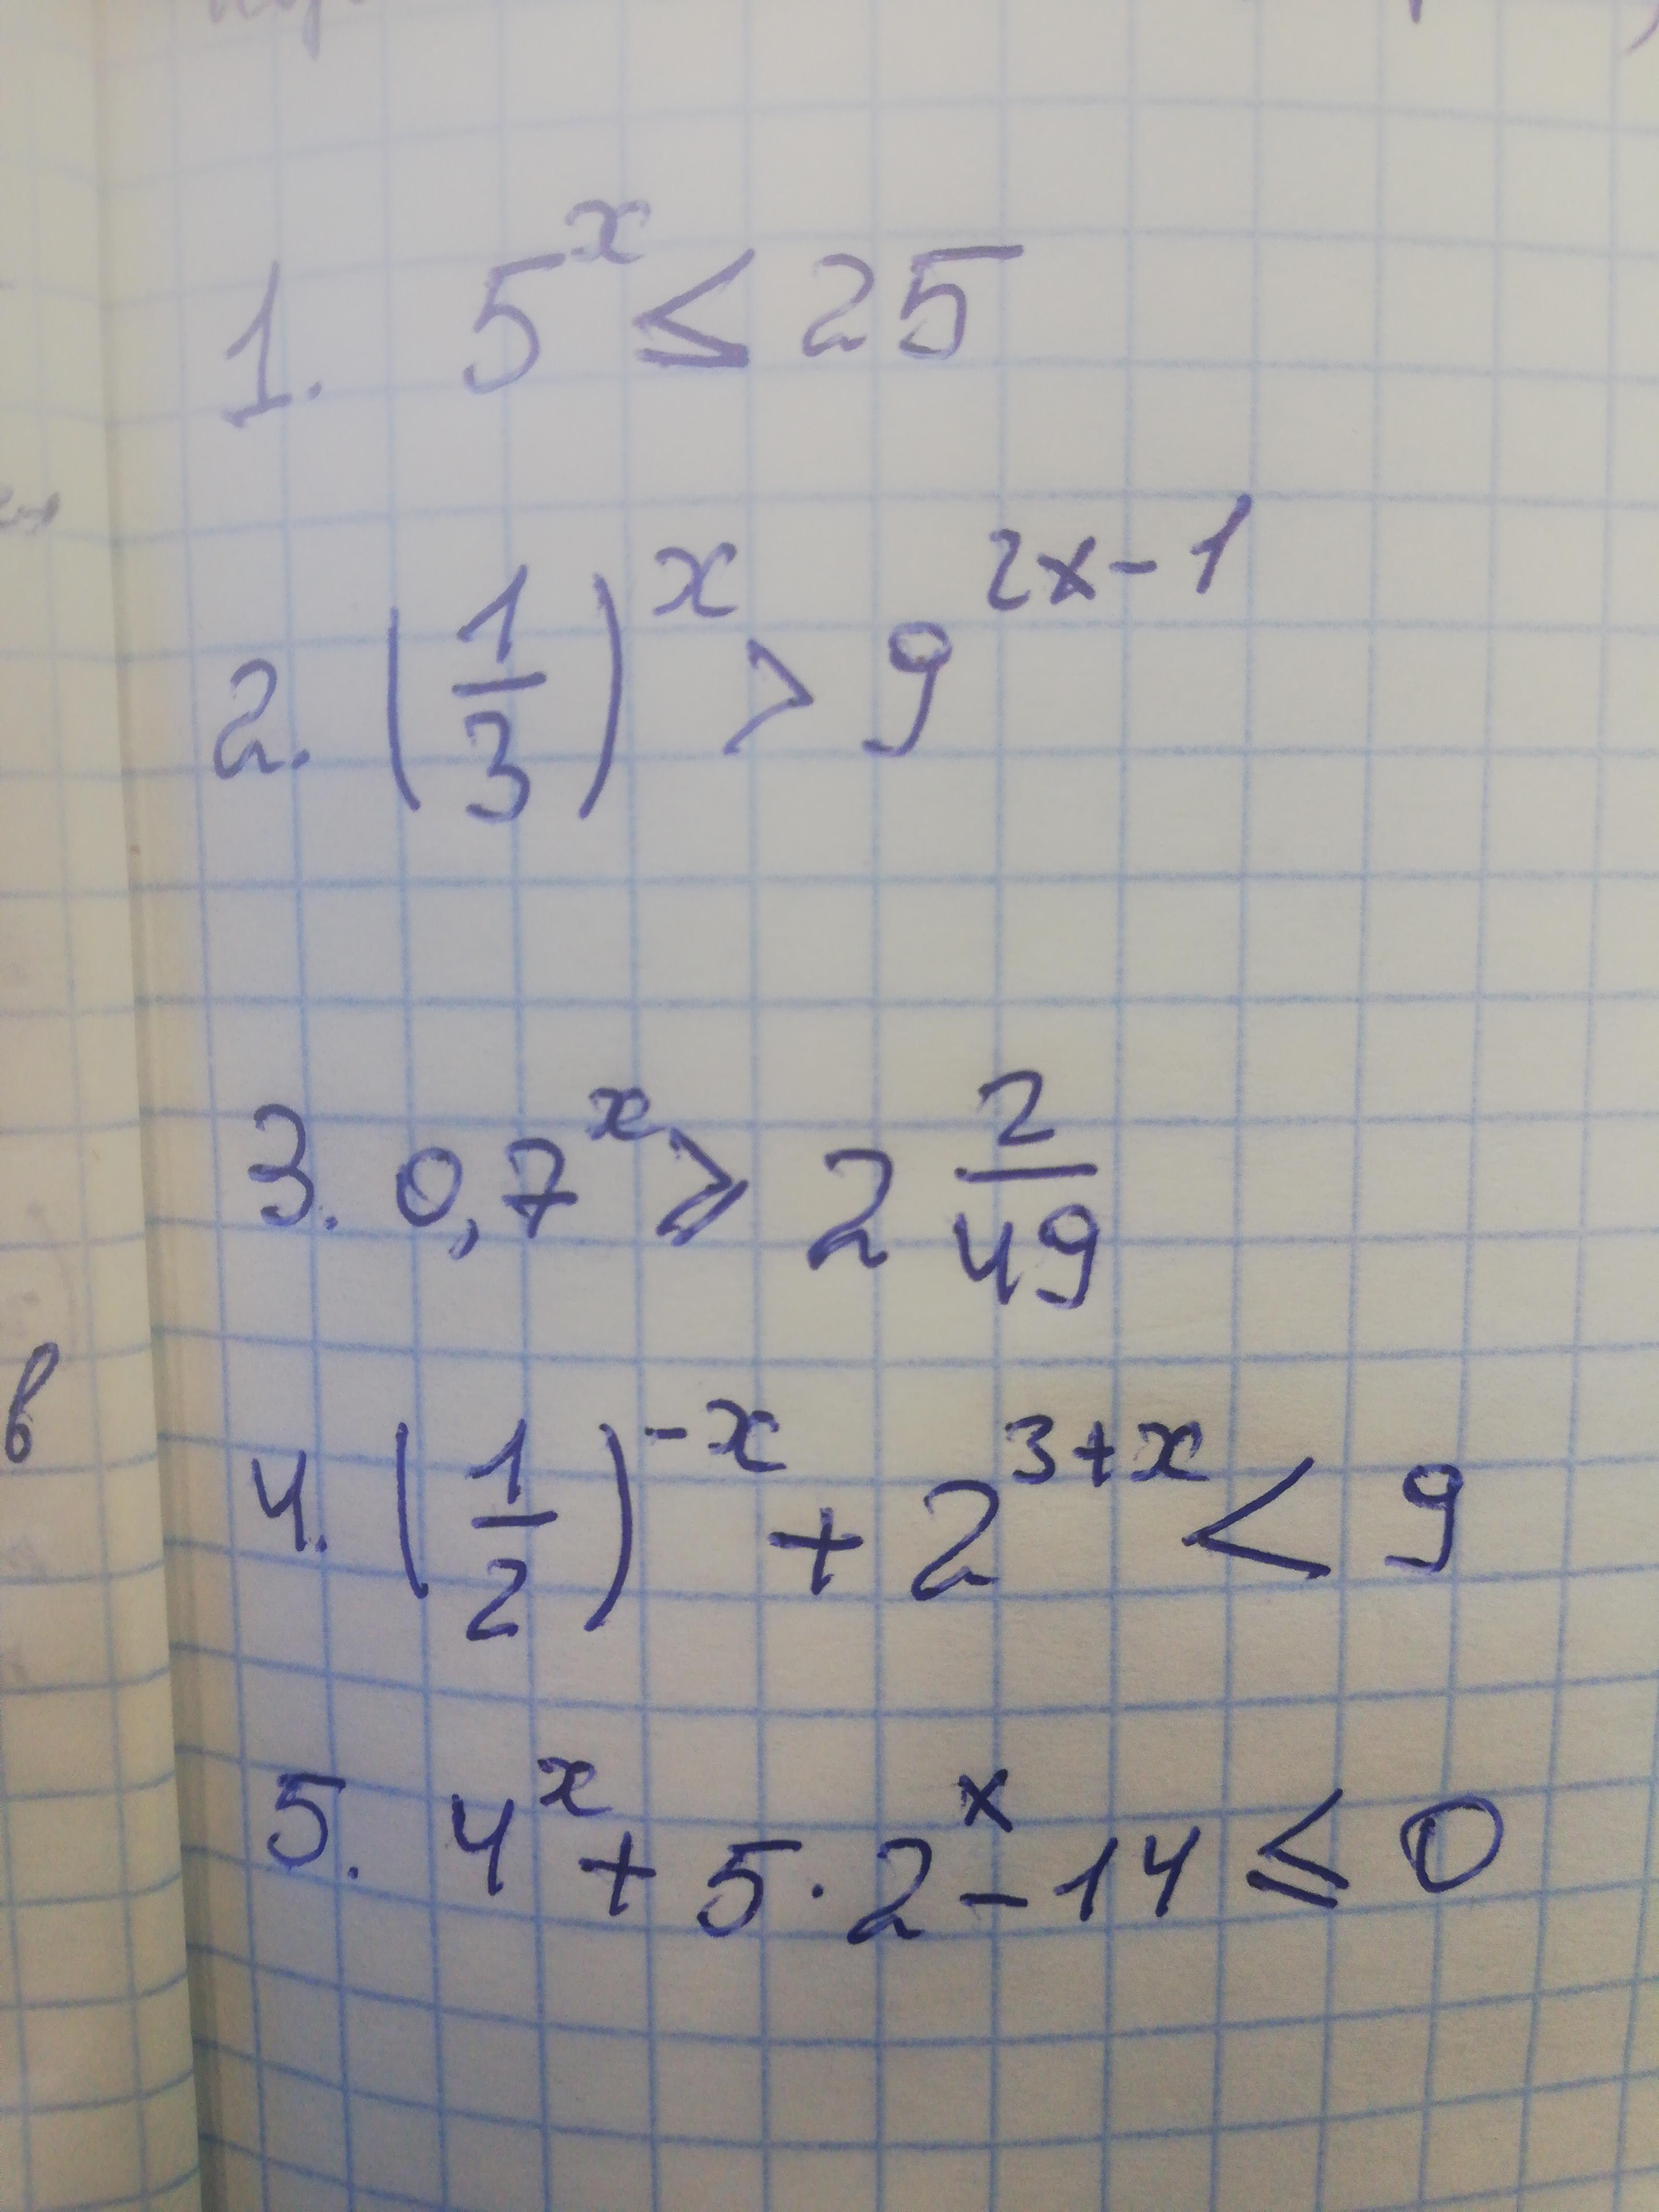 1. 5^x ≤ 25
2. (1/3)^x > 9^(2x-1)
3. 0,7^x ⩾ 2 2/49
4. (1/2)^(-x) + 2^(3+x) < 9
5. 4^x + 5·2^x - 14 ≤ 0
в